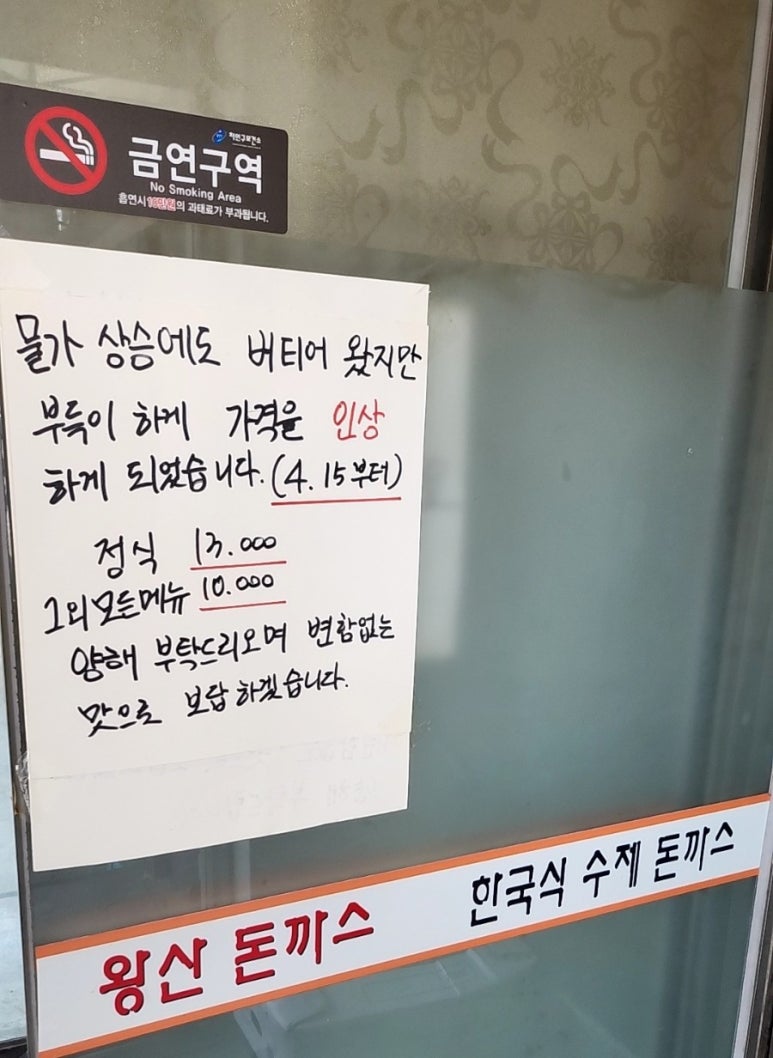 처인구보건소
금연구역
No Smoking Area
흡연시 10만원의 과태료가 부과됩니다.
물가 상승에도 버티어 왔지만
부득이 하게 가격을 인상
하게 되었습니다. (4. 15부터)
정식 13.000
그외 모든메뉴 10.000
양해 부탁드리오며 변함없는
맛으로 보답 하겠습니다.
왕산 돈까스 한국식 수제 돈까스